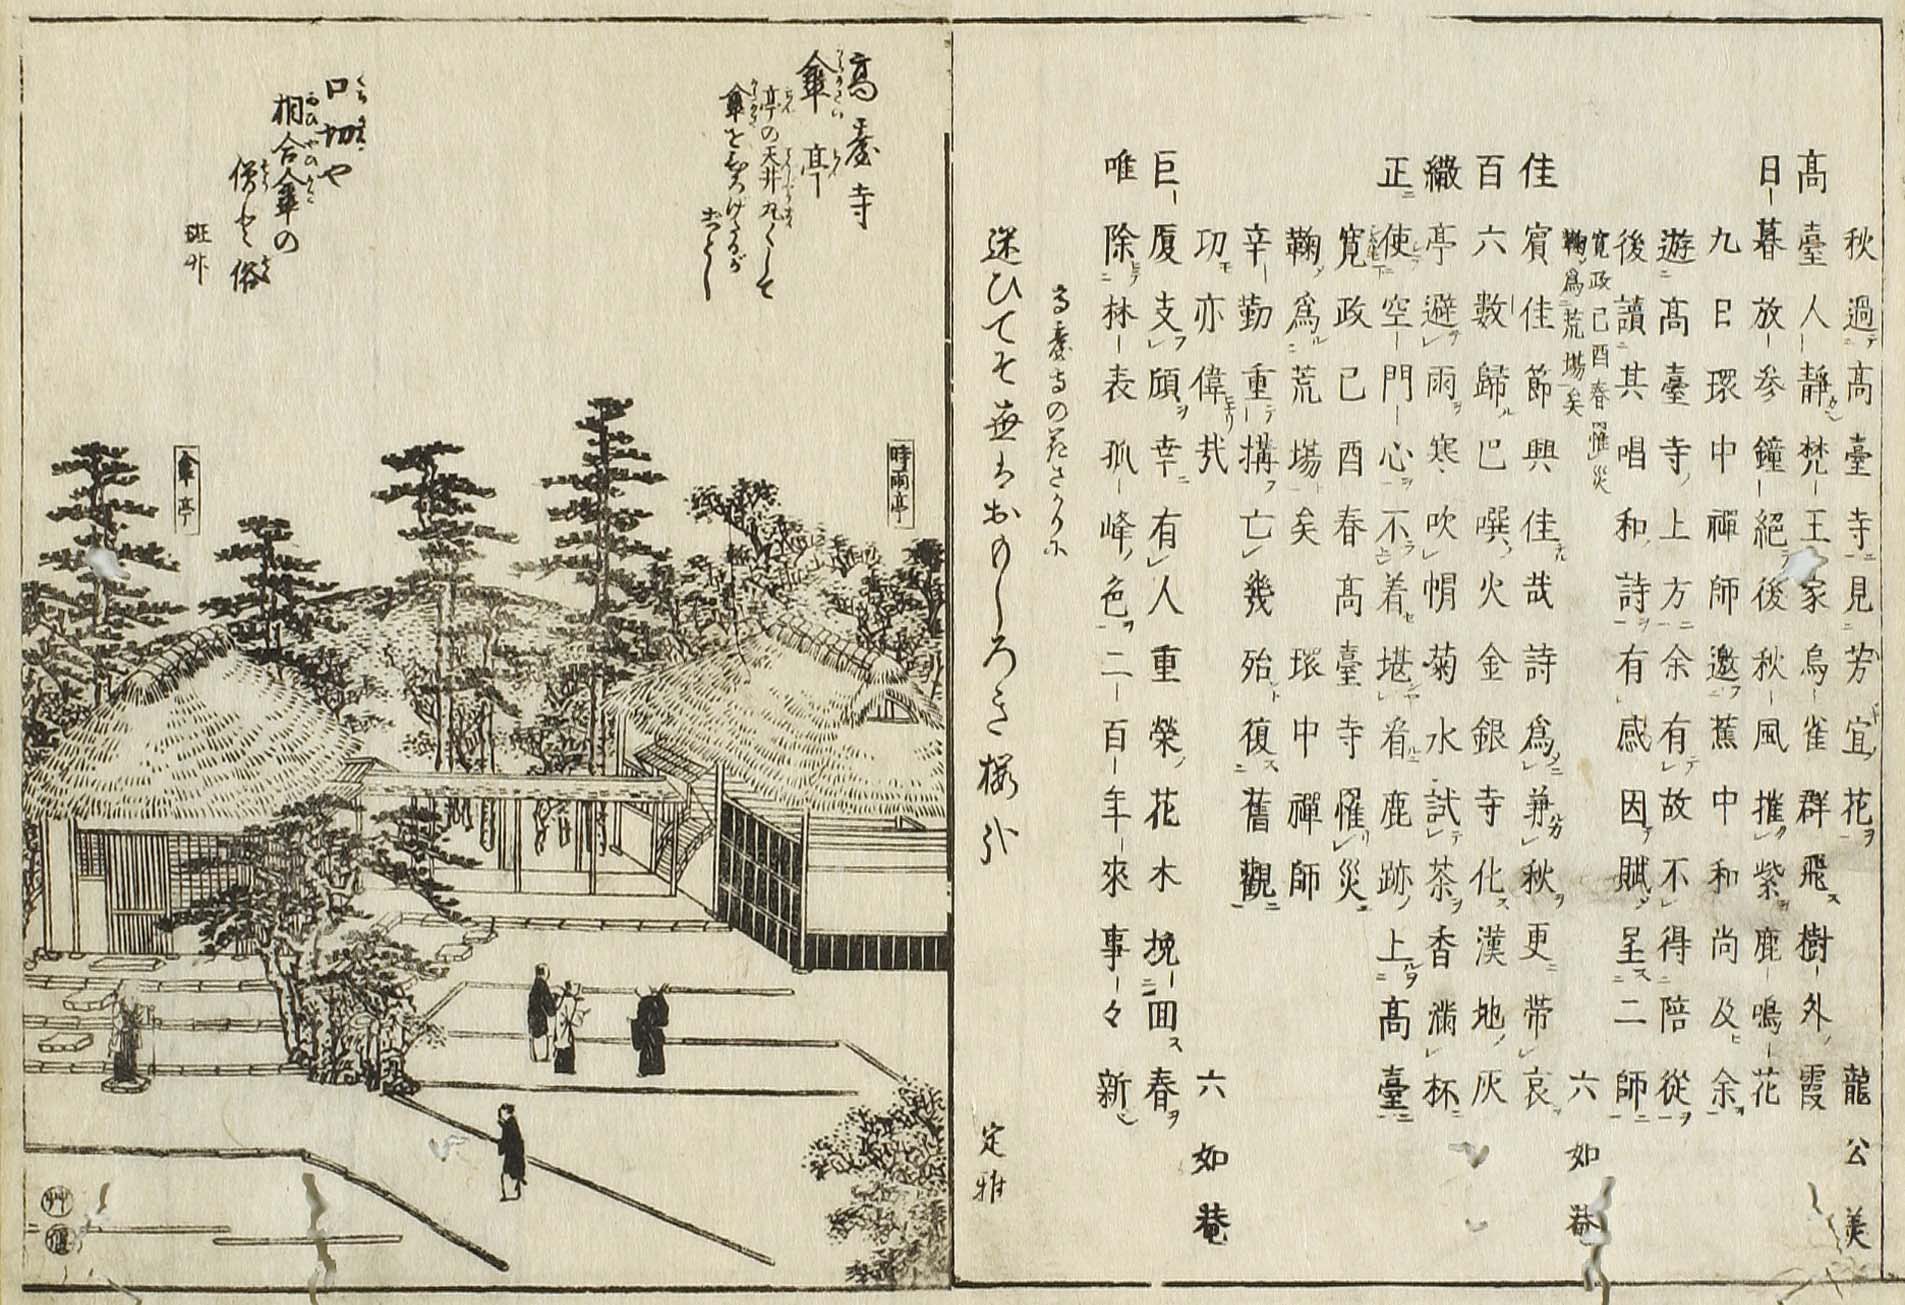 秋過高臺寺見芳宜花　龍公美
高臺人靜梵王家烏雀群飛樹外霞
日暮放參鐘絕後秋風摧紫鹿鳴花
九日環中禪師邀蕉中和尚及余
遊高臺寺上方余有故不得陪從
後讀其唱和詩有感因賦呈二師
寛政己酉春罹災
鞠爲荒場矣
六如菴
佳賓佳節興佳哉詩爲兼秋更帶哀
百六數歸巴噀火金銀寺化漢地灰
繖亭避雨寒吹帽菊水試茶香滿杯
正使空門心不着堪看鹿跡上高臺
寛政己酉春高臺寺罹災
鞠爲荒場矣環中禪師
辛勤重搆亡幾殆復舊觀
功亦偉哉　六如菴
巨厦支頽幸有人重榮花木挽回春
唯除林表孤峰色二百年來事々新
高臺寺の花さかりに
迷ひてそ
おもしろき桜
定雅
高臺寺
傘亭
亭の天井丸くして
傘を
ごとし
口切や
相合傘の
僧と俗
時雨亭
傘亭